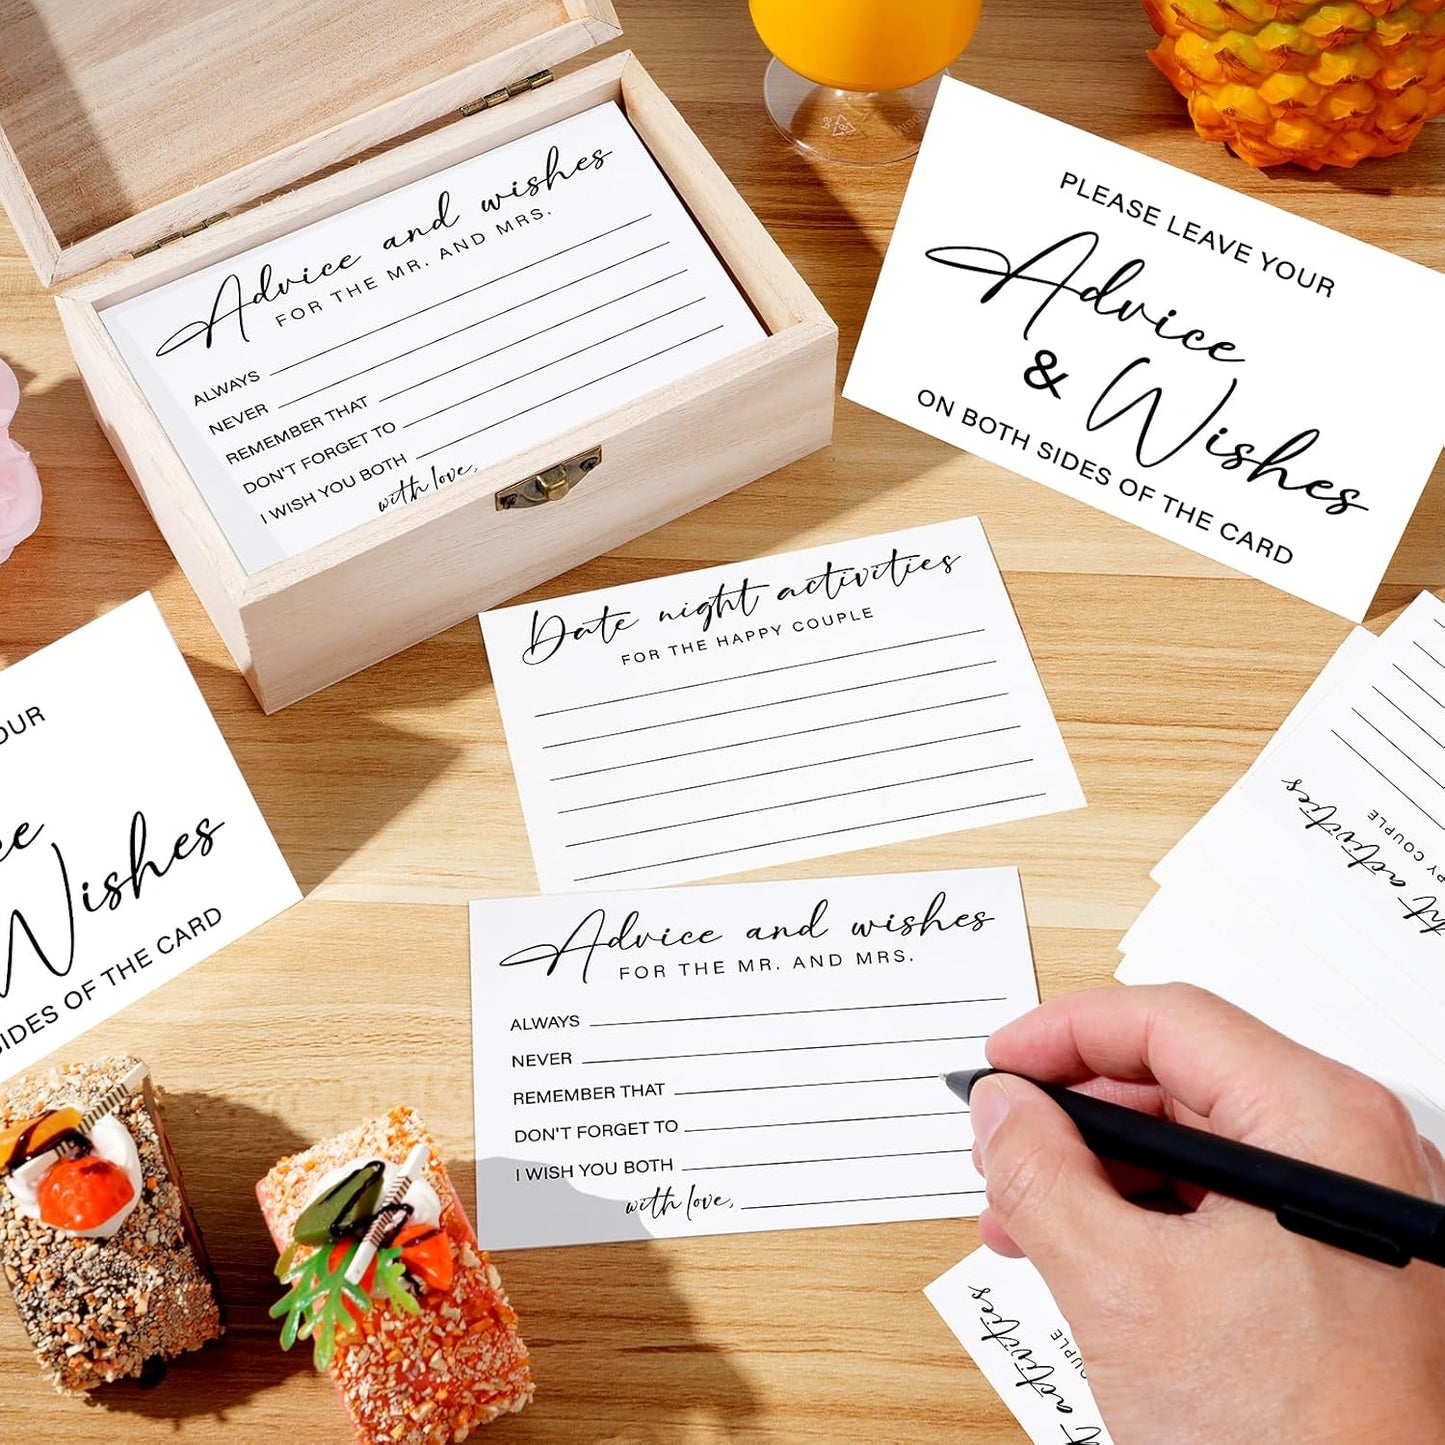 Advice and wishes
FOR THE MR. AND MRS.
ALWAYS
NEVER
REMEMBER THAT
DON'T FORGET TO
I WISH YOU BOTH
with love,
PLEASE LEAVE YOUR
Advice
& Wishes
ON BOTH SIDES OF THE CARD
Date night activities
FOR THE HAPPY COUPLE
OUR
ce
Wishes
SIDES OF THE CARD
Advice and wishes
FOR THE MR. AND MRS.
ALWAYS
NEVER
REMEMBER THAT
DON'T FORGET TO
I WISH YOU BOTH
with love,
ht activities
PY COUPLE
t activities
OUPLE